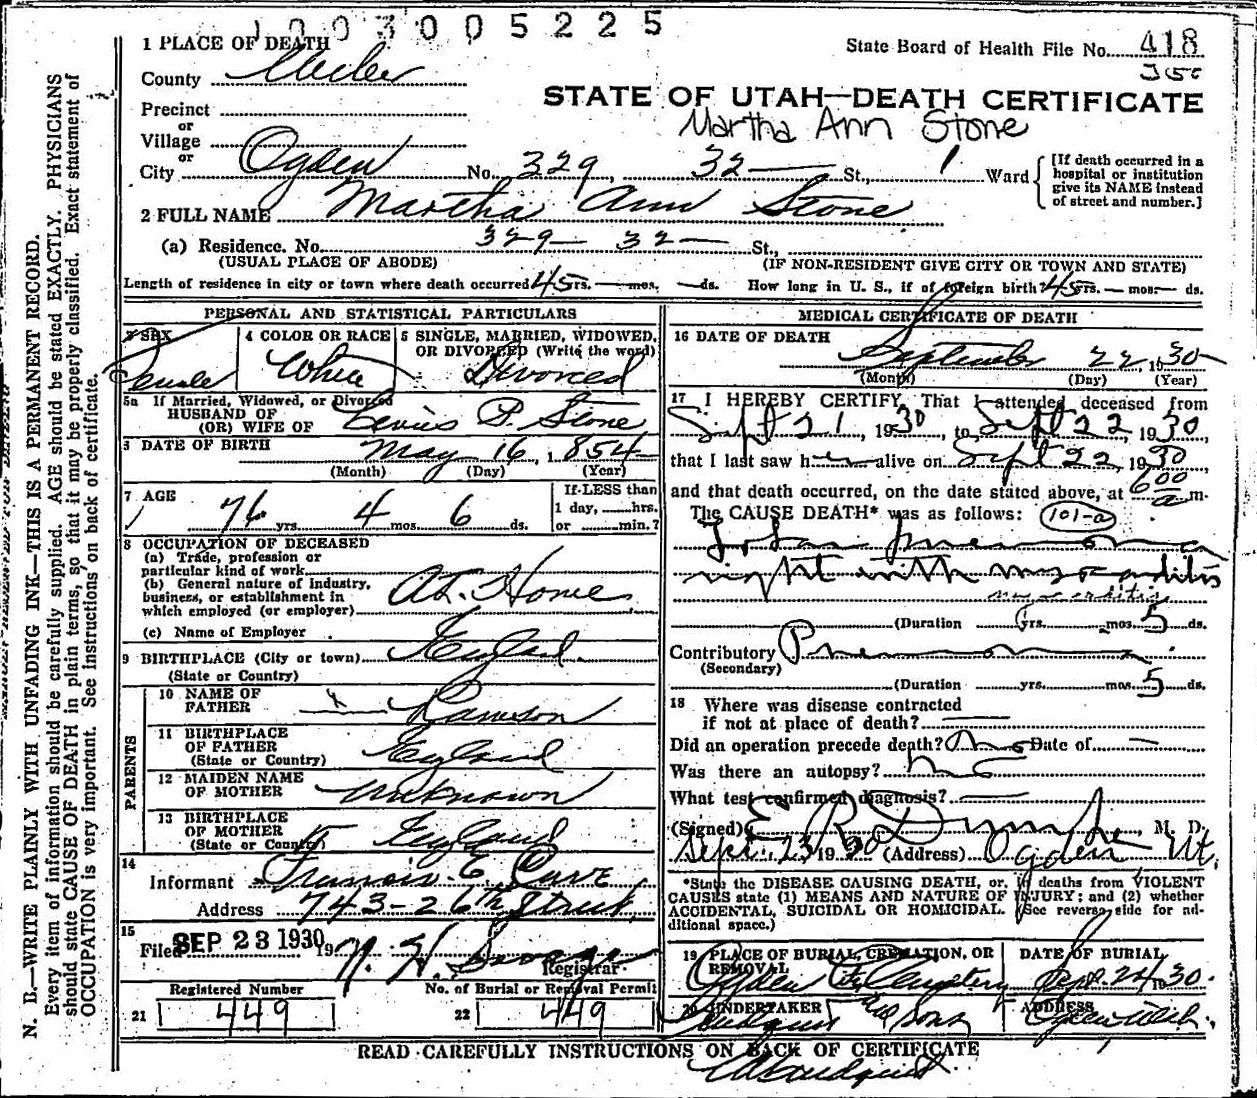 1003005225
1 PLACE OF DEATH
State Board of Health File No. 418
350
County Weber
STATE OF UTAH—DEATH CERTIFICATE
Martha Ann Stone
Precinct
or
Village
or
City Ogden No. 329, 32 St., Ward
[If death occurred in a hospital or institution give its NAME instead of street and number.]
2 FULL NAME Martha Ann Stone
(a) Residence. No. 329 32 St.,
(USUAL PLACE OF ABODE) (IF NON-RESIDENT GIVE CITY OR TOWN AND STATE)
Length of residence in city or town where death occurred 45 yrs. — mos. — ds. How long in U. S., if of foreign birth? 45 yrs. — mos. — ds.
PERSONAL AND STATISTICAL PARTICULARS
3 SEX
Female
4 COLOR OR RACE
White
5 SINGLE, MARRIED, WIDOWED, OR DIVORCED (Write the word)
Divorced
5a If Married, Widowed, or Divorced
HUSBAND OF
(OR) WIFE OF P. Stone
6 DATE OF BIRTH May 16, 1854
(Month) (Day) (Year)
7 AGE
76 yrs. 4 mos. 6 ds.
If LESS than
1 day, ......hrs.
or ......min.?
8 OCCUPATION OF DECEASED
(a) Trade, profession or
particular kind of work
(b) General nature of industry,
business, or establishment in
which employed (or employer) At Home
(c) Name of Employer
9 BIRTHPLACE (City or town) England
(State or Country)
PARENTS
10 NAME OF
FATHER — Rawson
11 BIRTHPLACE
OF FATHER England
(State or Country)
12 MAIDEN NAME
OF MOTHER Unknown
13 BIRTHPLACE
OF MOTHER England
(State or Country)
14
Informant Francis E. Cave
Address 743-26th Street
15
Filed SEP 23 1930 19
Registrar
Registered Number No. of Burial or Removal Permit
21 449 22 449
MEDICAL CERTIFICATE OF DEATH
16 DATE OF DEATH
September 22, 1930
(Month) (Day) (Year)
17 I HEREBY CERTIFY, That I attended deceased from
Sept 21, 1930, to Sept 22, 1930,
that I last saw her alive on Sept 22, 1930
and that death occurred, on the date stated above, at 600 a m.
The CAUSE DEATH* was as follows: 101-a
Lobar pneumonia
right with myocarditis
myocarditis
(Duration yrs. mos. 5 ds.
Contributory Pneumonia
(Secondary)
(Duration yrs. mos. 5 ds.
18 Where was disease contracted
if not at place of death? —
Did an operation precede death? No Date of —
Was there an autopsy? no
What test confirmed diagnosis? —
(Signed) E R Dumke, M. D.
Sept. 23 1930 (Address) Ogden Ut.
*State the DISEASE CAUSING DEATH, or, in deaths from VIOLENT
CAUSES state (1) MEANS AND NATURE OF INJURY; and (2) whether
ACCIDENTAL, SUICIDAL OR HOMICIDAL. (See reverse side for ad-
ditional space.)
19 PLACE OF BURIAL, CREMATION, OR
REMOVAL
Ogden City Cemetery
DATE OF BURIAL
Sept. 24 1930.
20 UNDERTAKER
and sons
ADDRESS
Ogden Utah
READ CAREFULLY INSTRUCTIONS ON BACK OF CERTIFICATE
N. B.—WRITE PLAINLY WITH UNFADING INK—THIS IS A PERMANENT RECORD.
Every item of information should be carefully supplied. AGE should be stated EXACTLY. PHYSICIANS
should state CAUSE OF DEATH in plain terms, so that it may be properly classified. Exact statement of
OCCUPATION is very important. See Instructions on back of certificate.